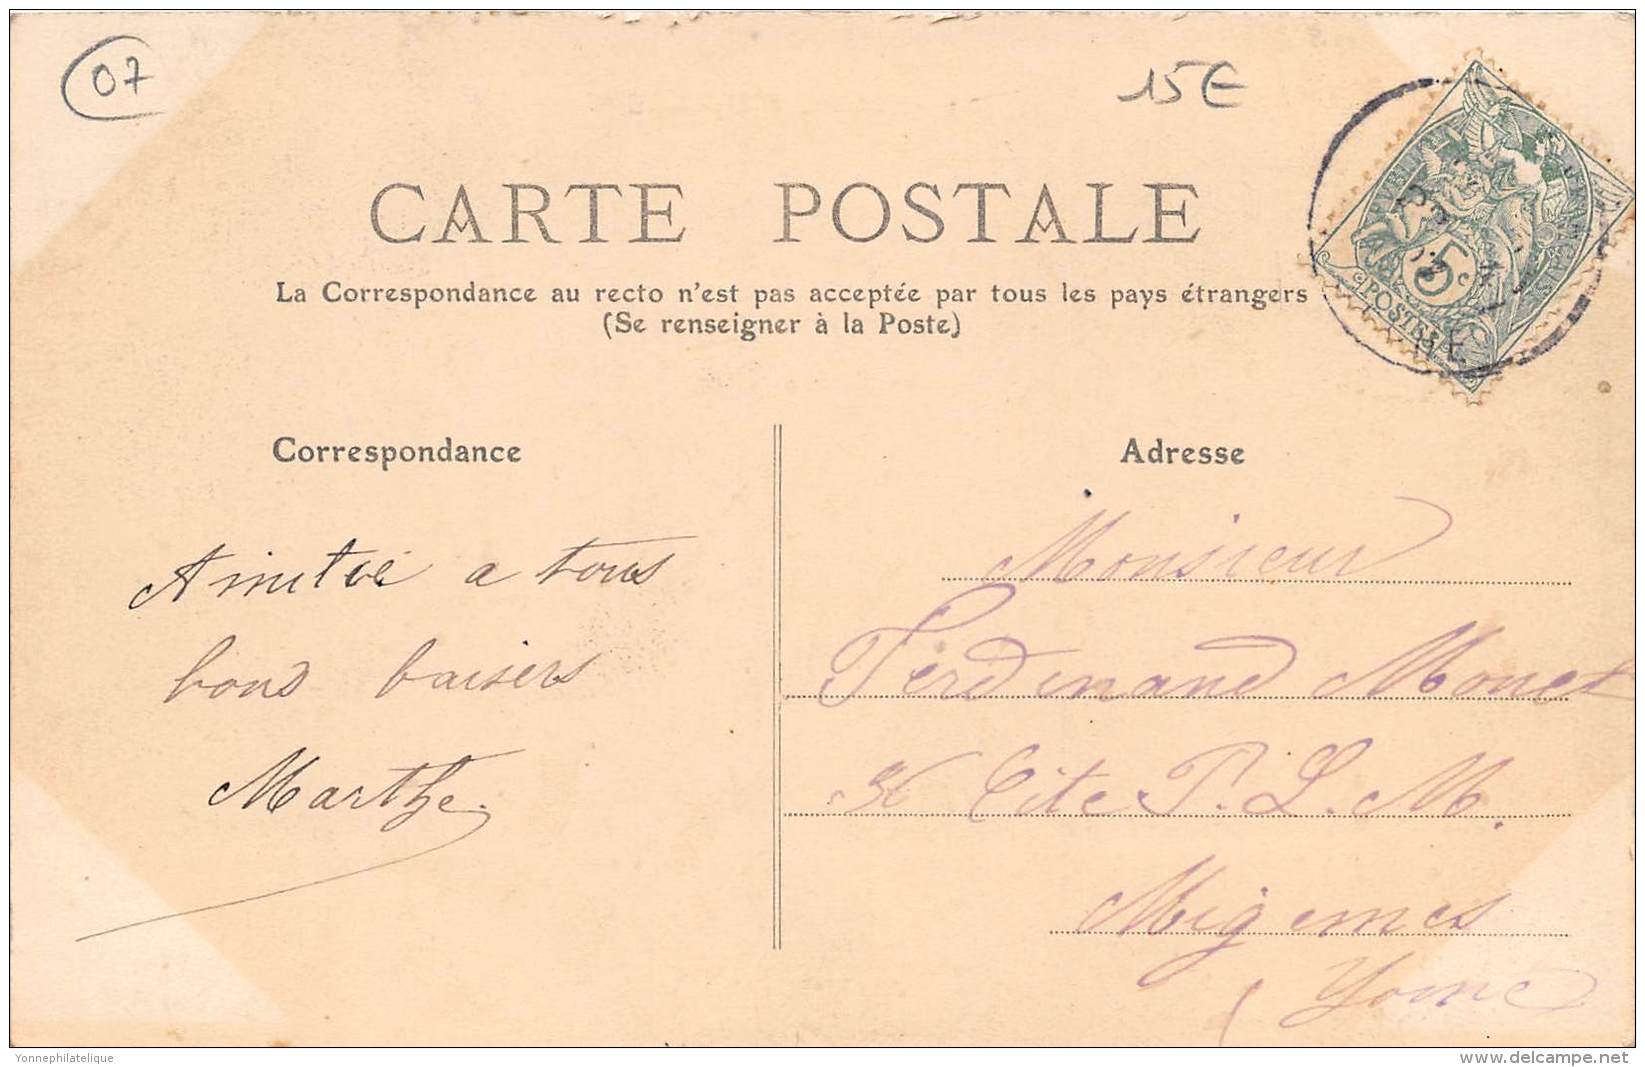 07
15E
CARTE POSTALE
La Correspondance au recto n'est pas acceptée par tous les pays étrangers
(Se renseigner à la Poste)
5c
POSTES
Correspondance
Adresse
Amitié a tous
bons baisers
Marthe
Monsieur
Ferdinand Monet
Cite P. L. M.
Migemes
Yonne
Yonnephilatelique
delcampe.net